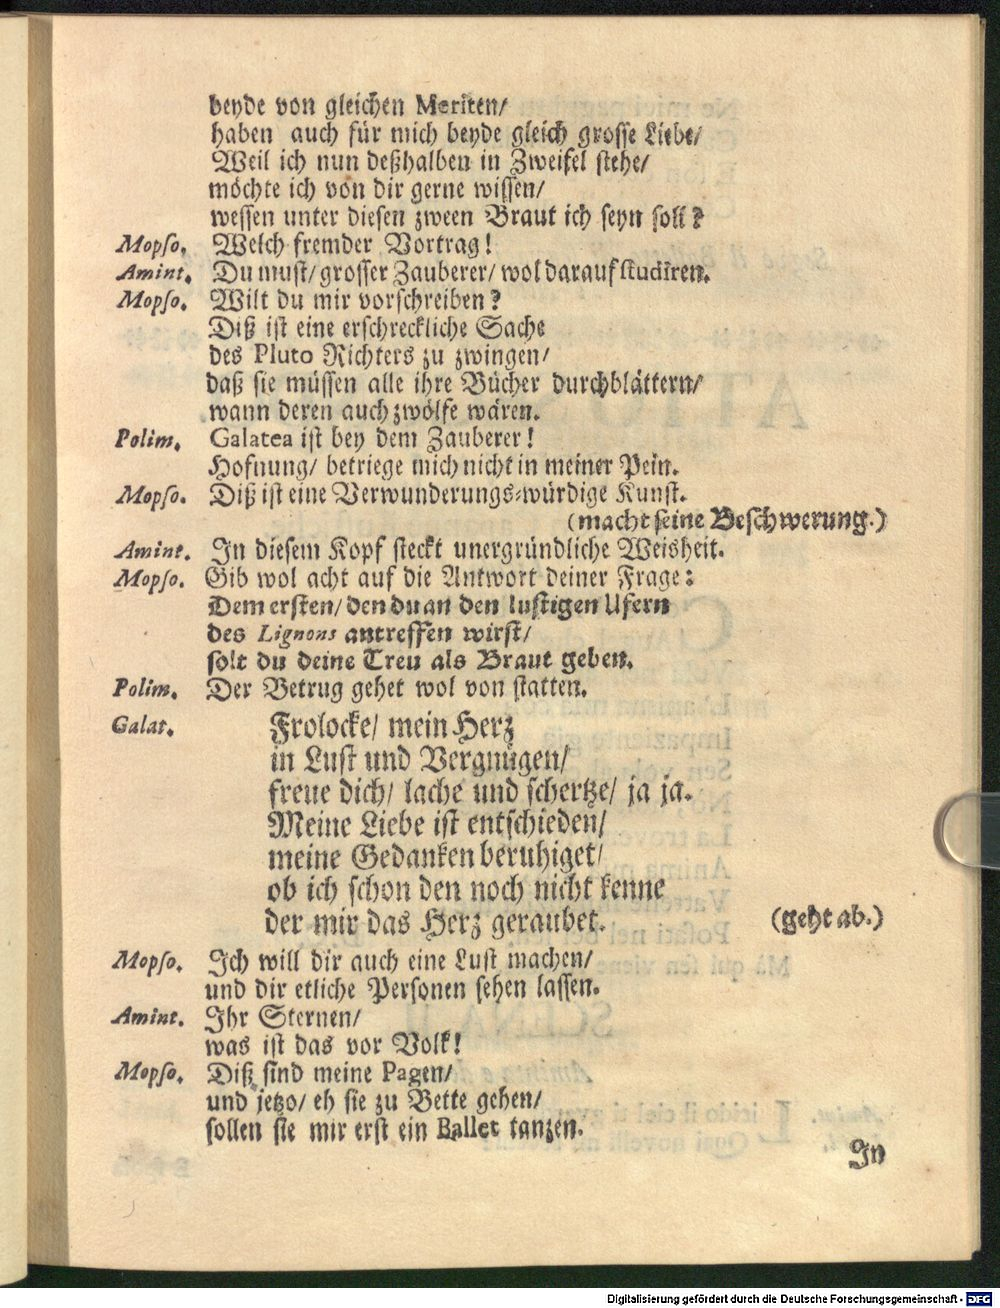 beyde von gleichen Meriten/
haben auch für mich beyde gleich grosse Liebe/
Weil ich nun deßhalben in Zweifel stehe/
möchte ich von dir gerne wissen/
wessen unter diesen zween Braut ich seyn soll?
Mopso. Welch fremder Vortrag!
Amint. Du must/ grosser Zauberer/ wol darauf studiren.
Mopso. Wilt du mir vorschreiben?
Diß ist eine erschreckliche Sache
des Pluto Richters zu zwingen/
daß sie müssen alle ihre Bücher durchblättern/
wann deren auch zwölfe wären.
Polim. Galatea ist bey dem Zauberer!
Hofnung/ betriege mich nicht in meiner Pein.
Mopso. Diß ist eine Verwunderungs-würdige Kunst.
(macht seine Beschwerung.)
Amint. In diesem Kopf steckt unergründliche Weisheit.
Mopso. Gib wol acht auf die Antwort deiner Frage:
Dem ersten/ den du an den lustigen Ufern
des Lignons antreffen wirst/
solt du deine Treu als Braut geben.
Polim. Der Betrug gehet wol von statten.
Galat. Frolocke/ mein Herz
in Lust und Vergnügen/
freue dich/ lache und schertze/ ja ja.
Meine Liebe ist entschieden/
meine Gedanken beruhiget/
ob ich schon den noch nicht kenne
der mir das Herz geraubet. (geht ab.)
Mopso. Ich will dir auch eine Lust machen/
und dir etliche Personen sehen lassen.
Amint. Ihr Sternen/
was ist das vor Volk!
Mopso. Diß sind meine Pagen/
und jetzo/ eh sie zu Bette gehen/
sollen sie mir erst ein Ballet tanzen.
In
Digitalisierung gefördert durch die Deutsche Forschungsgemeinschaft - DFG